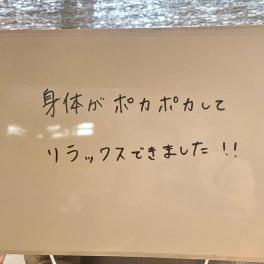 身体がポカポカして
リラックスできました!!